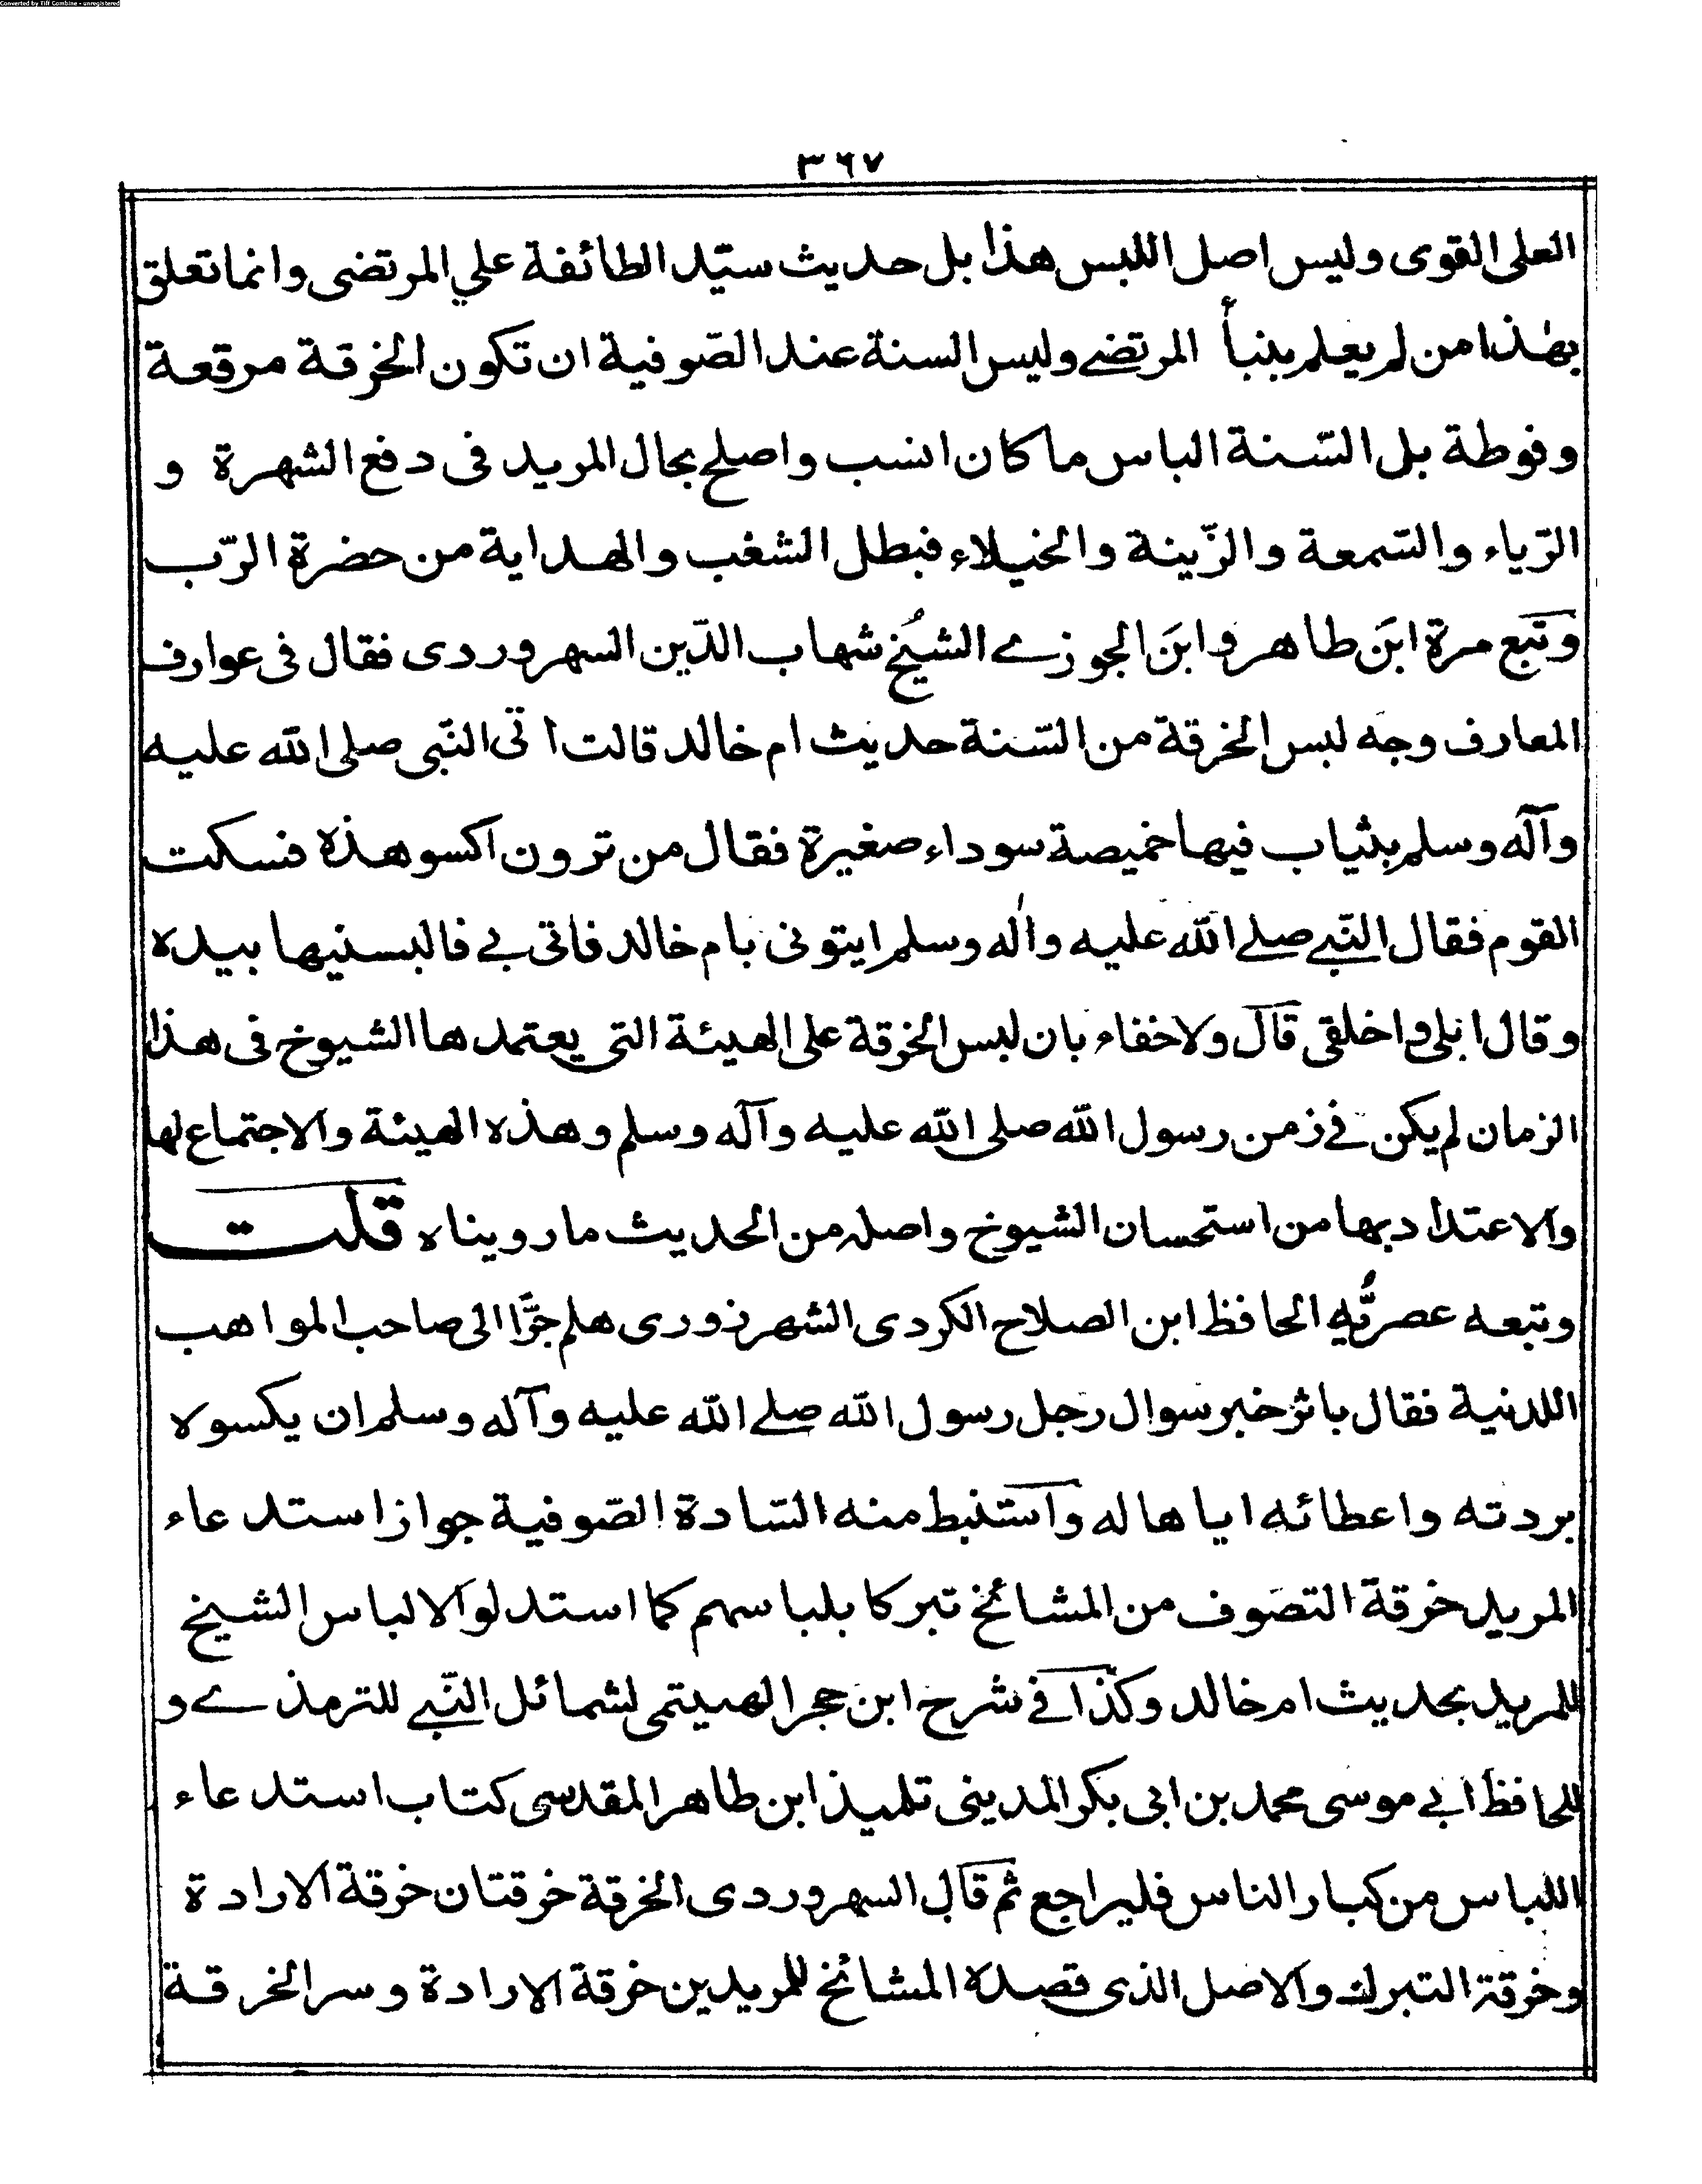 Converted by Tiff Combine - unregistered
٣٦٧
العلى القوى وليس اصل اللبس هذا بل حديث سيّد الطائفة علي المرتضى وانما تعلق
بهٰذا من لم يعلم بنبأ المرتضے وليس السنة عند الصّوفية ان تكون الخرقة مرقعة
وفوطة بل السّنة الباس ما كان انسب واصلح بحال المريد فى دفع الشهرة و
الرّياء والسّمعة والزّينة والخيلاء فبطل الشغب والهداية من حضرة الرّب
وتبع مرة ابنَ طاهر وابنَ الجوزے الشيخُ شهاب الدّين السهروردى فقال فى عوارف
المعارف وجه لبس الخرقة من السّنة حديث ام خالد قالت اتى النّبى صلى الله عليه
وآله وسلم بثياب فيها خميصة سوداء صغيرة فقال من ترون اكسو هذه فسكت
القوم فقال النّبے صلے الله عليه واٰله وسلم ايتونى بام خالد فاتى بے فالبسنيها بيده
وقال ابلى واخلقى قال ولا خفاء بان لبس الخرقة على الهيئة التى يعتمدها الشيوخ فى هذا
الزمان لم يكن فے زمن رسول الله صلى الله عليه وآله وسلم وهذه الهيئة والاجتماع لها
والاعتداد بها من استحسان الشيوخ واصله من الحديث ما رويناه قلت
وتبعه عصريُّه الحافظ ابن الصلاح الكردى الشهرزورى هلم جرًّا الى صاحب المواهب
اللدنية فقال باثر خبر سوال رجل رسول الله صلے الله عليه وآله وسلم ان يكسوه
بردته واعطائه اياها له واستنبط منه السّادة الصّوفية جواز استدعاء
المريد خرقة التصوف من المشائخ تبركا بلباسهم كما استدلوا لالباس الشيخ
للمريد بحديث ام خالد وكذا فے شرح ابن حجر الهيتمى لشمائل النّبے للترمذے و
للحافظ ابے موسى محمد بن ابى بكر المدينى تلميذ ابن طاهر المقدسى كتاب استدعاء
اللباس من كبار الناس فليراجع ثم قال السهروردى الخرقة خرقتان خرقة الارادة
وخرقة التبرك والاصل الذى قصده المشائخ للمريدين خرقة الارادة وسر الخرقة